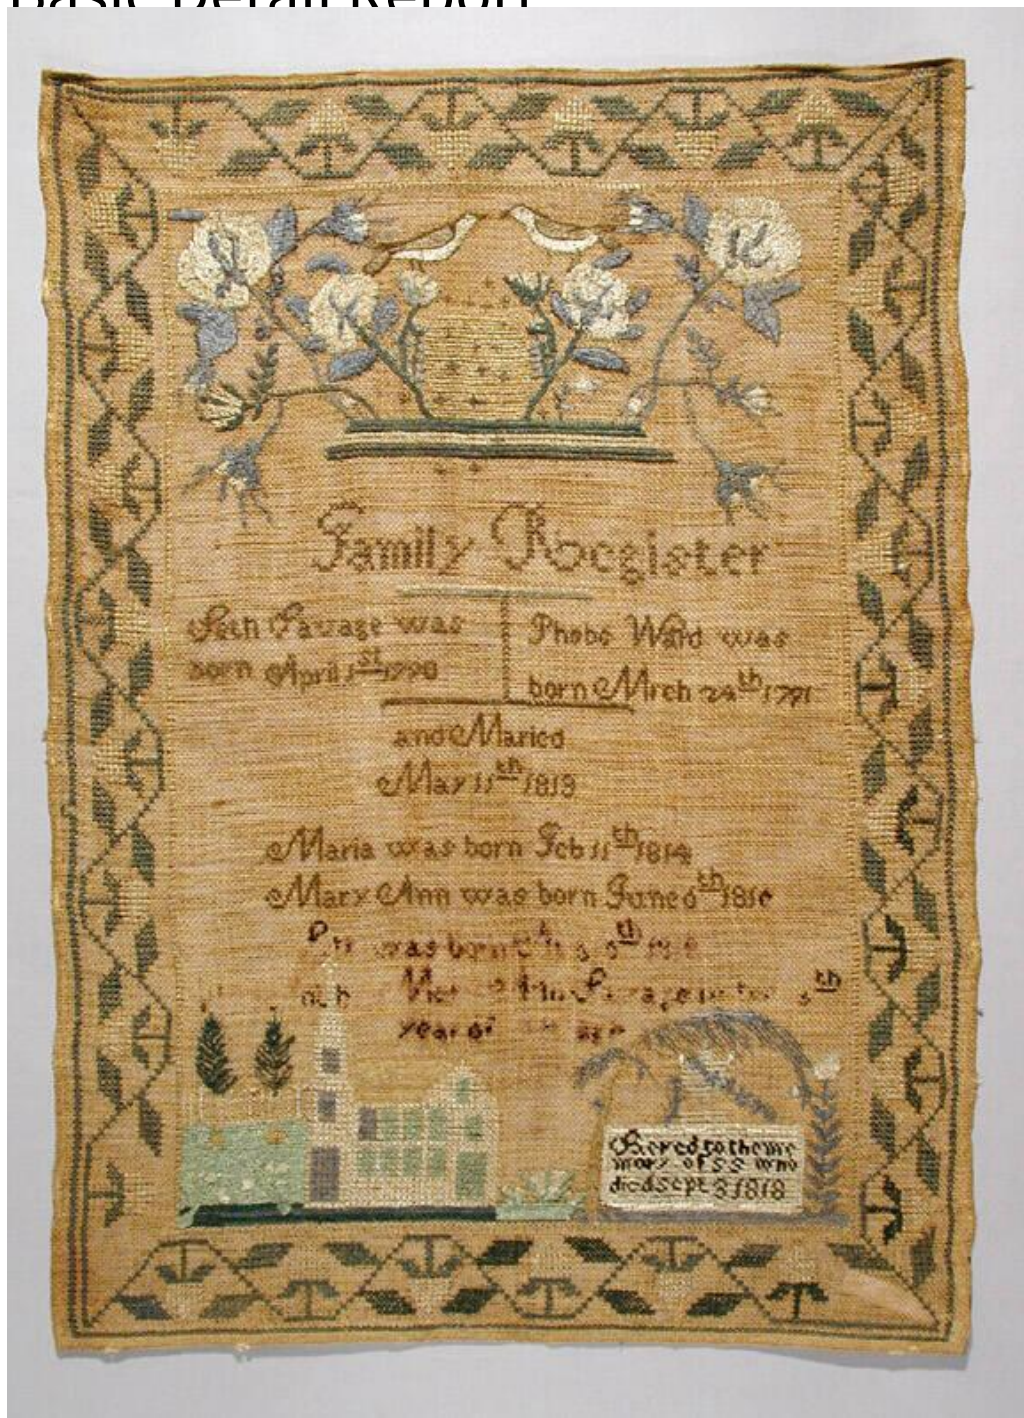 Basic Detail Report
Family Roegister
Seth Savage was
born April 1st 1790
Phebe Ward was
born Mrch 24th 1791
and Maried
May 11th 1813
Maria was born Feb 11th 1814
Mary Ann was born June 6th 1816
was born 5th
th
year of
Sacred to the me
mory of S S who
died Sept 3 1818